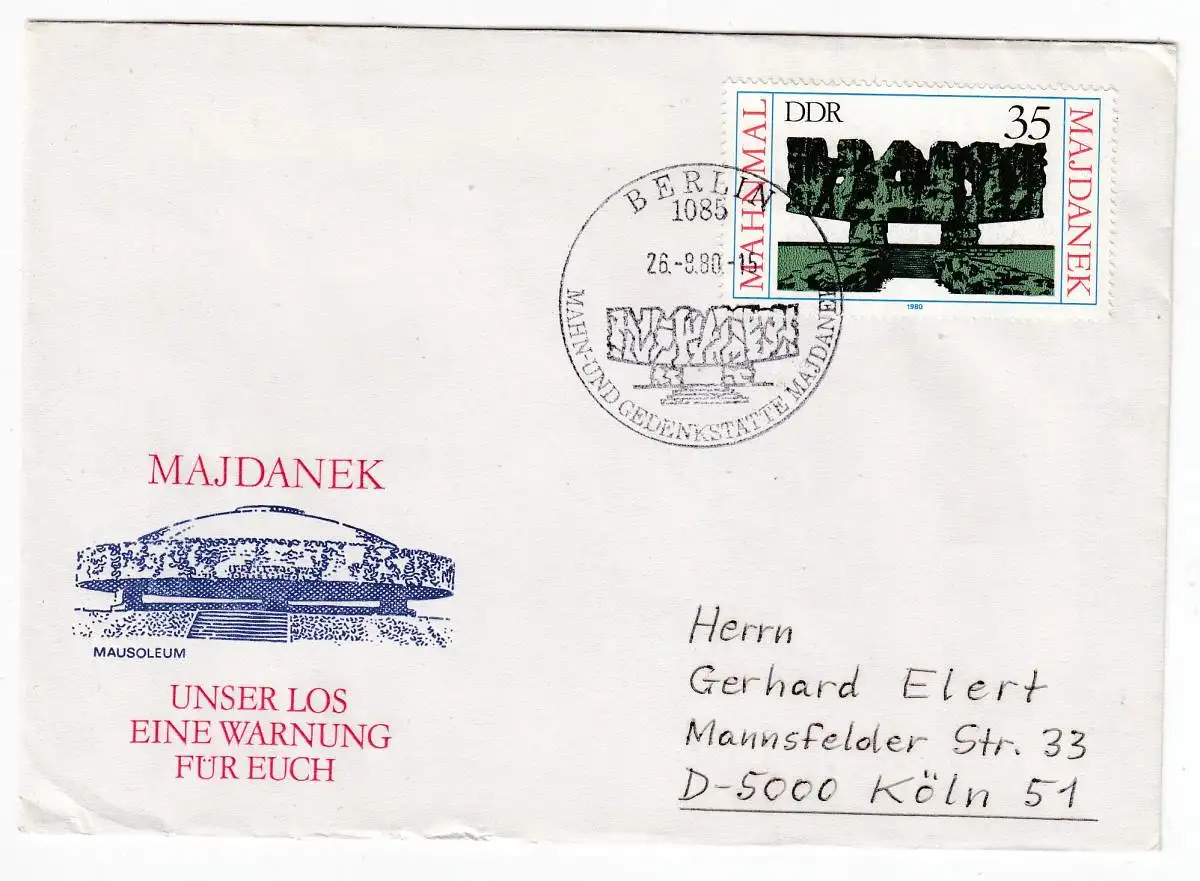 MAHNMAL
DDR
35
MAJDANEK
1980
BERLIN
1085
26.-8.80.-15
MAHN-UND GEDENKSTÄTTE MAJDANEK
MAJDANEK
MAUSOLEUM
UNSER LOS
EINE WARNUNG
FÜR EUCH
Herrn
Gerhard Elert
Mannsfelder Str. 33
D-5000 Köln 51